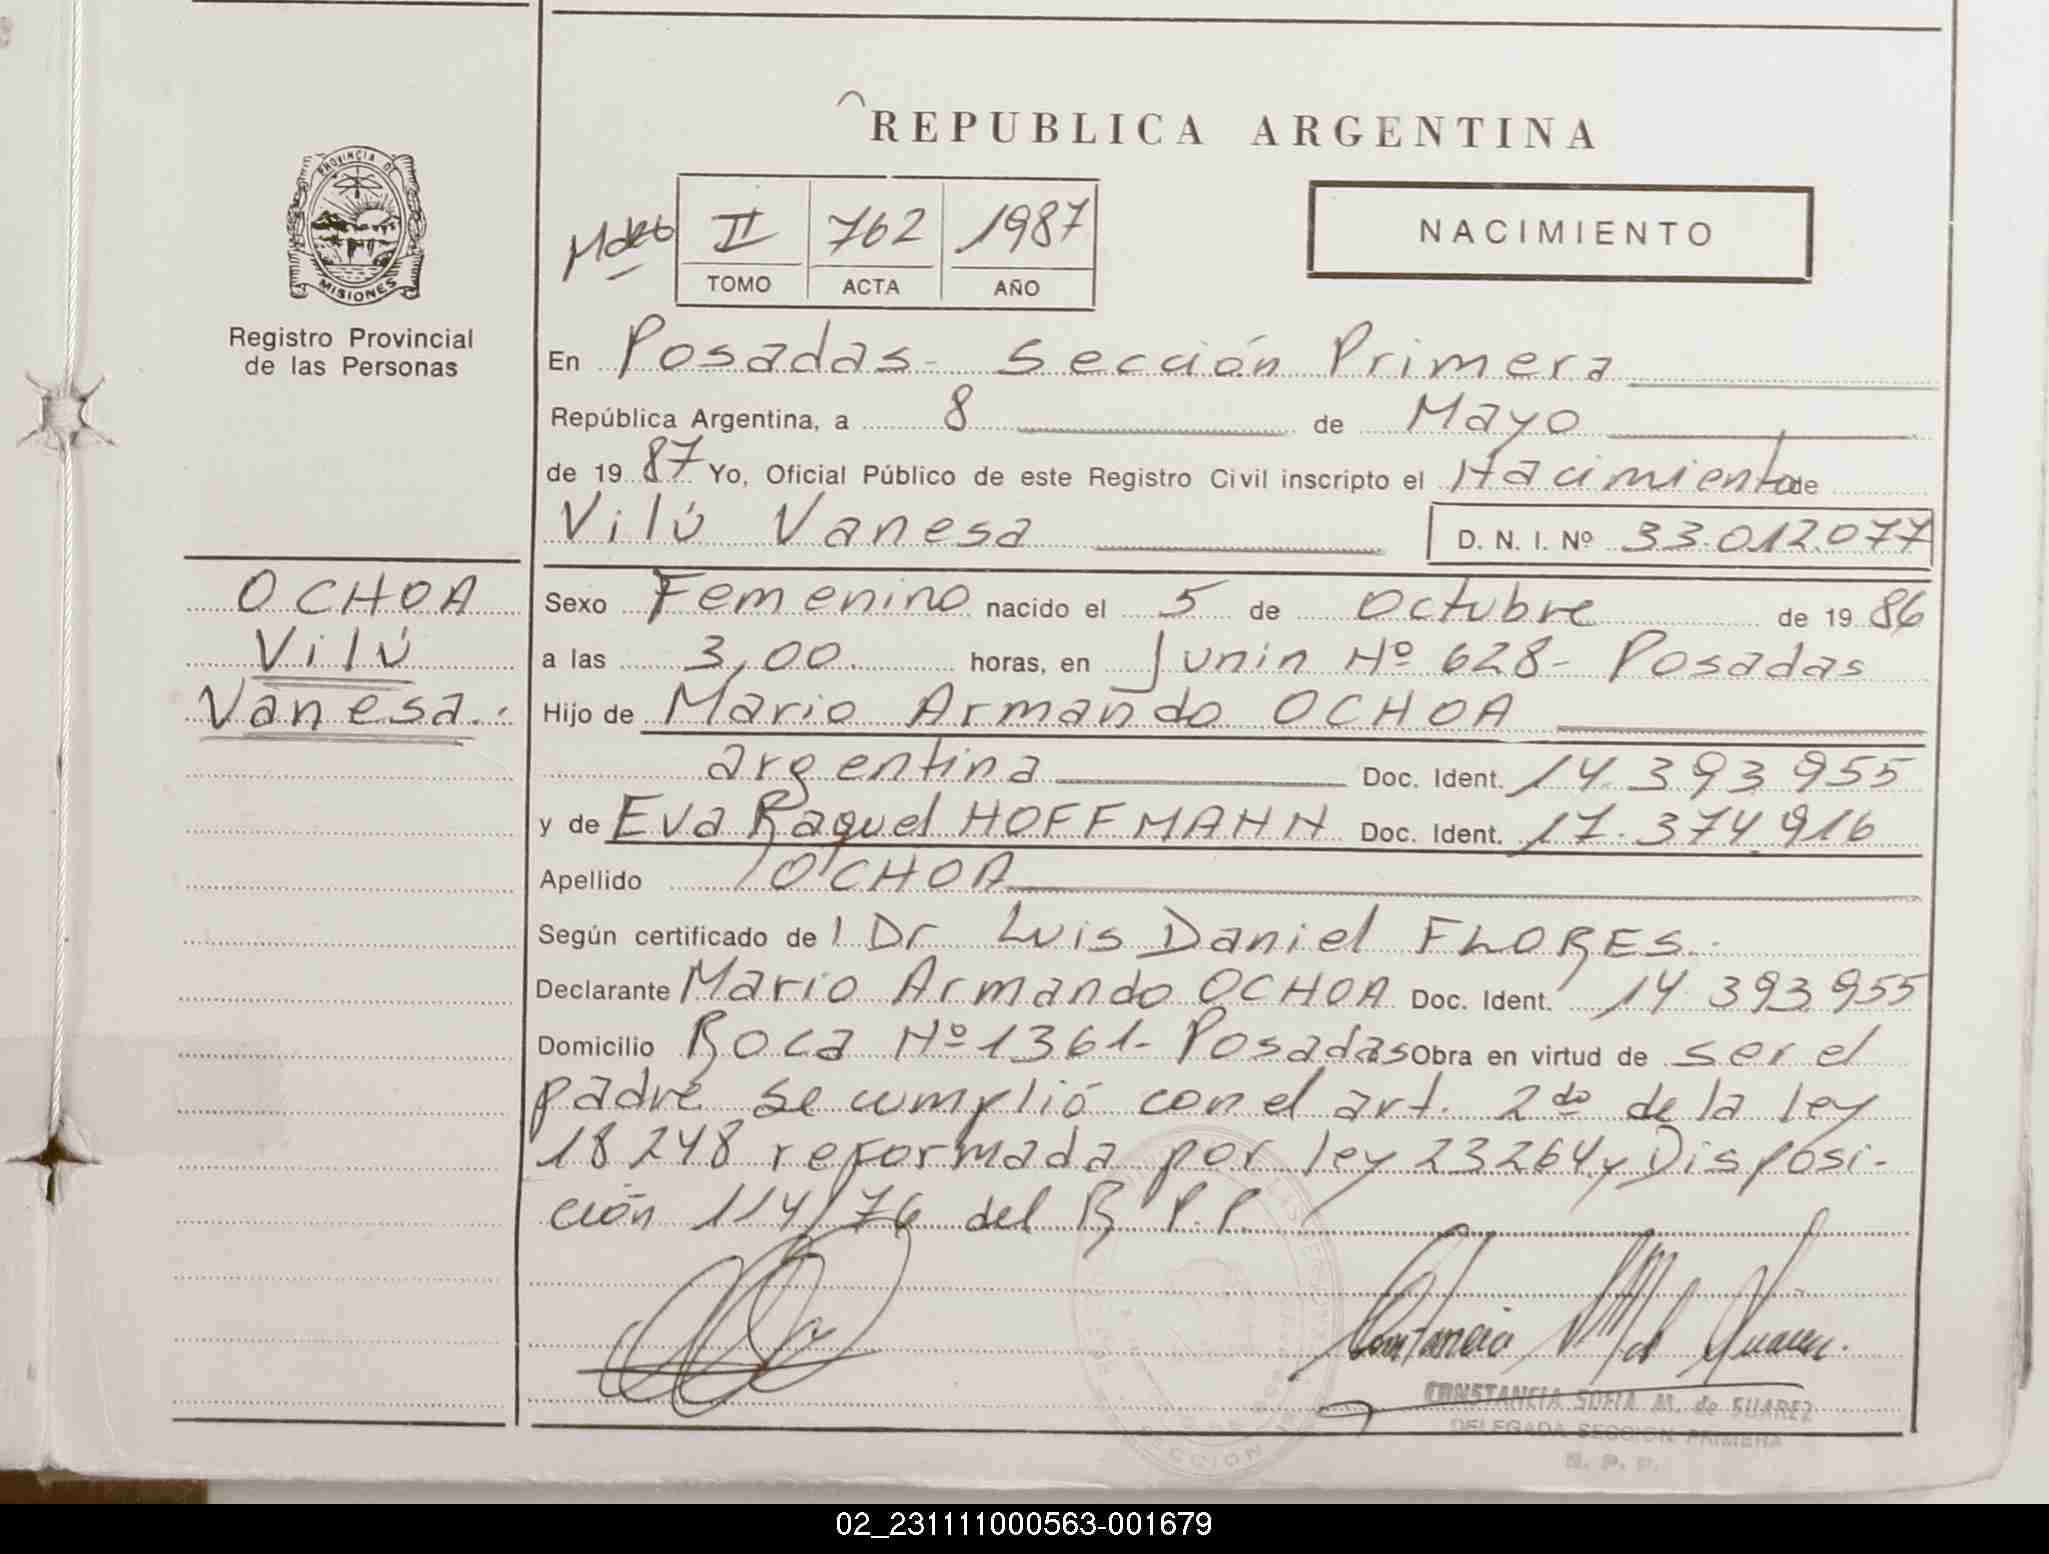 REPUBLICA ARGENTINA
PROVINCIA DE
MISIONES
Registro Provincial
de las Personas
II 762 1987
TOMO ACTA AÑO
NACIMIENTO
En Posadas - Sección Primera
República Argentina, a 8 de Mayo
de 19 87 Yo, Oficial Público de este Registro Civil inscripto el Nacimiento de
Vilú Vanesa D. N. I. Nº 33.012.077
OCHOA
Vilú
Vanesa.
Sexo Femenino nacido el 5 de Octubre de 19 86
a las 3,00 horas, en Junin Nº 628 - Posadas
Hijo de Mario Armando OCHOA
argentina Doc. Ident. 14.393.955
y de Eva Raquel HOFFMANN Doc. Ident. 17.374.916
Apellido OCHOA
Según certificado de l Dr Luis Daniel FLORES.
Declarante Mario Armando OCHOA Doc. Ident. 14.393.955
Domicilio Roca Nº 1361 - Posadas Obra en virtud de ser el
padre se cumplió con el art. 2do de la ley
18248 reformada por ley 23264 y Disposi-
ción 114/76 del R.P.P.
Constancia M de Suarez.
CONSTANCIA SOFIA M. de SUAREZ
DELEGADA SECCION PRIMERA
R. P. P.
SECCION
02_231111000563-001679